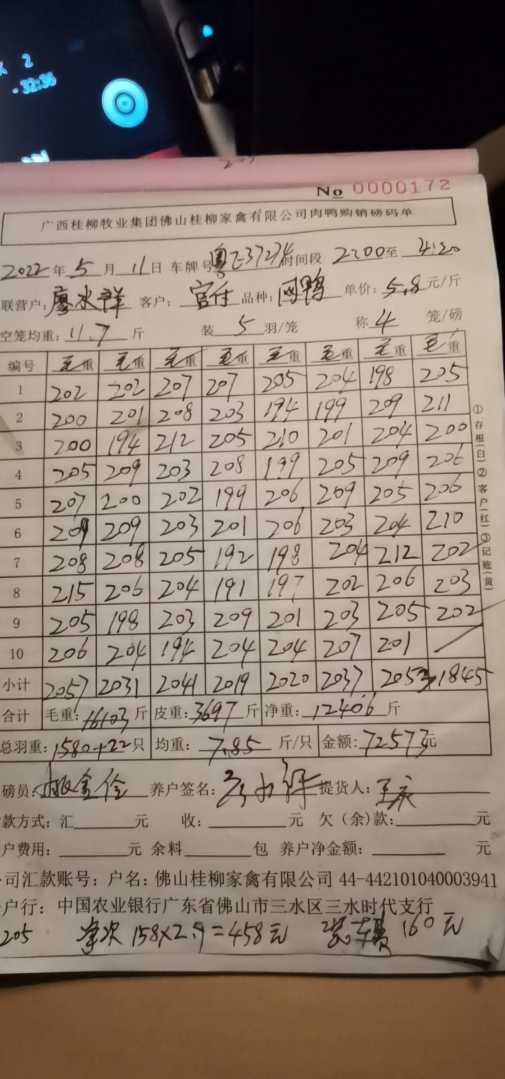 2
-32:36
No 0000172
广西桂柳牧业集团佛山桂柳家禽有限公司肉鸭购销磅码单
2022年5月11日 车牌号 粤E37274 时间段 2200至 4:20
联营户: 廖水祥 客户: 品种: 肉鸭 单价: 5.8元/斤
空笼均重: 11.7 斤 装 5 羽/笼 称 4 笼/磅
编号 毛重 毛重 毛重 毛重 毛重 毛重 毛重 毛重
1 202 202 207 207 205 204 198 205
2 200 201 208 203 194 199 209 211
3 200 194 212 205 210 201 204 200
4 205 209 203 208 199 205 209 206
5 207 200 202 199 206 209 205 206
6 209 209 203 201 206 203 204 210
7 208 208 205 192 198 204 212 202
8 215 206 204 191 197 202 206 203
9 205 198 203 209 201 203 205 202
10 206 204 194 204 204 207 201
小计 2057 2031 2041 2019 2020 2037 2053 1845
合计 毛重: 16103斤 皮重: 3697斤 净重: 12406斤
总羽重: 1580+22只 均重: 7.85 斤/只 金额: 72573元
磅员: 养户签名: 提货人: 王庆
款方式: 汇 元 收: 元 欠(余)款: 元
户费用: 元 余料 包 养户净金额: 元
司汇款账号: 户名: 佛山桂柳家禽有限公司 44-442101040003941
户行: 中国农业银行广东省佛山市三水区三水时代支行
205 158×2.9=458元 装车费 160元
①存根(白)②客户(红)③记账(黄)